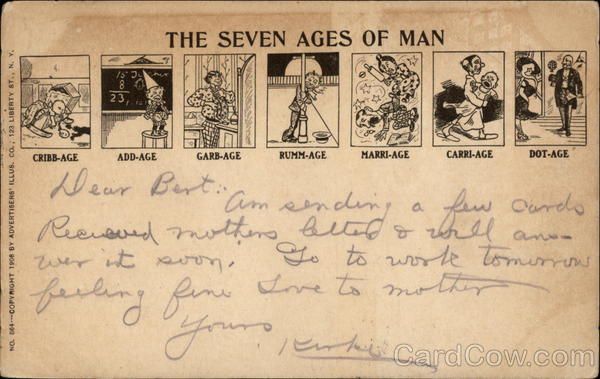 THE SEVEN AGES OF MAN
15
8
23
CRIBB-AGE ADD-AGE GARB-AGE RUMM-AGE MARRI-AGE CARRI-AGE DOT-AGE
Dear Bert:
Am sending a few cards
Recieved mothers letter & will ans-
wer it soon. Go to work tomorrow
feeling fine Love to mother
Yours
NO. 564—COPYRIGHT 1908 BY ADVERTISERS' ILLUS. CO., 123 LIBERTY ST., N. Y.
CardCow.com